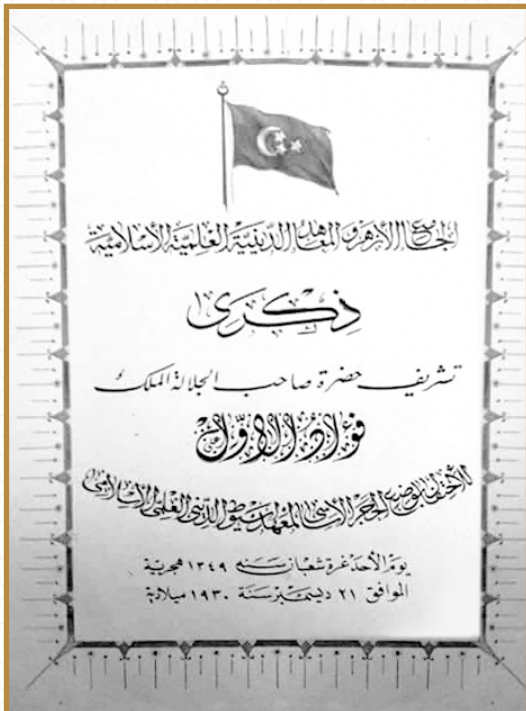 الجامع الأزهر والمعاهد الدينية العلمية الأسلامية
ذكرى
تشريف حضرة صاحب الجلالة الملك
فؤاد الاول
للأحتفال بوضع الحجر الاساسى لمعهد أسيوط الدينى العلمى الاسلامى
يوم الأحد غرة شعبان سنة ١٣٤٩ هجرية
الموافق ٢١ ديسمبر سنة ١٩٣٠ ميلادية